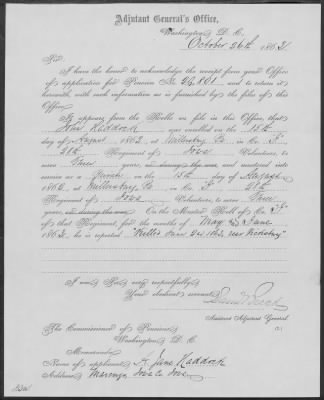 Adjutant General's Office,
Washington, D. C.
October 26th, 1863
Sir:
I have the honor to acknowledge the receipt from your Office
of application for Pension No. and to return it
herewith, with such information as is furnished by the files of this
Office.
It appears from the Rolls on file in this Office, that
Haddock was enrolled on the 15th
day of August 1862, at Pa. in Co. F.
28th Regiment of Iowa Volunteers, to serve
years, or during the war, and mustered into
service as a Private on the 15th day of August
1862, at Pa. in Co. F. 28th
Regiment of Iowa Volunteers, to serve
years, or during the war. On the Muster Roll of Co. F.
of that Regiment, for the months of May and June
1863, he is reported "Killed near Vicksburg"
I am, Sir, very respectfully,
Your obedient servant,
Assistant Adjutant General
The Commissioner of Pensions,
Washington, D. C.
Memoranda:
Name of applicant, Jane Haddock
Address, Marengo, Iowa Co Iowa